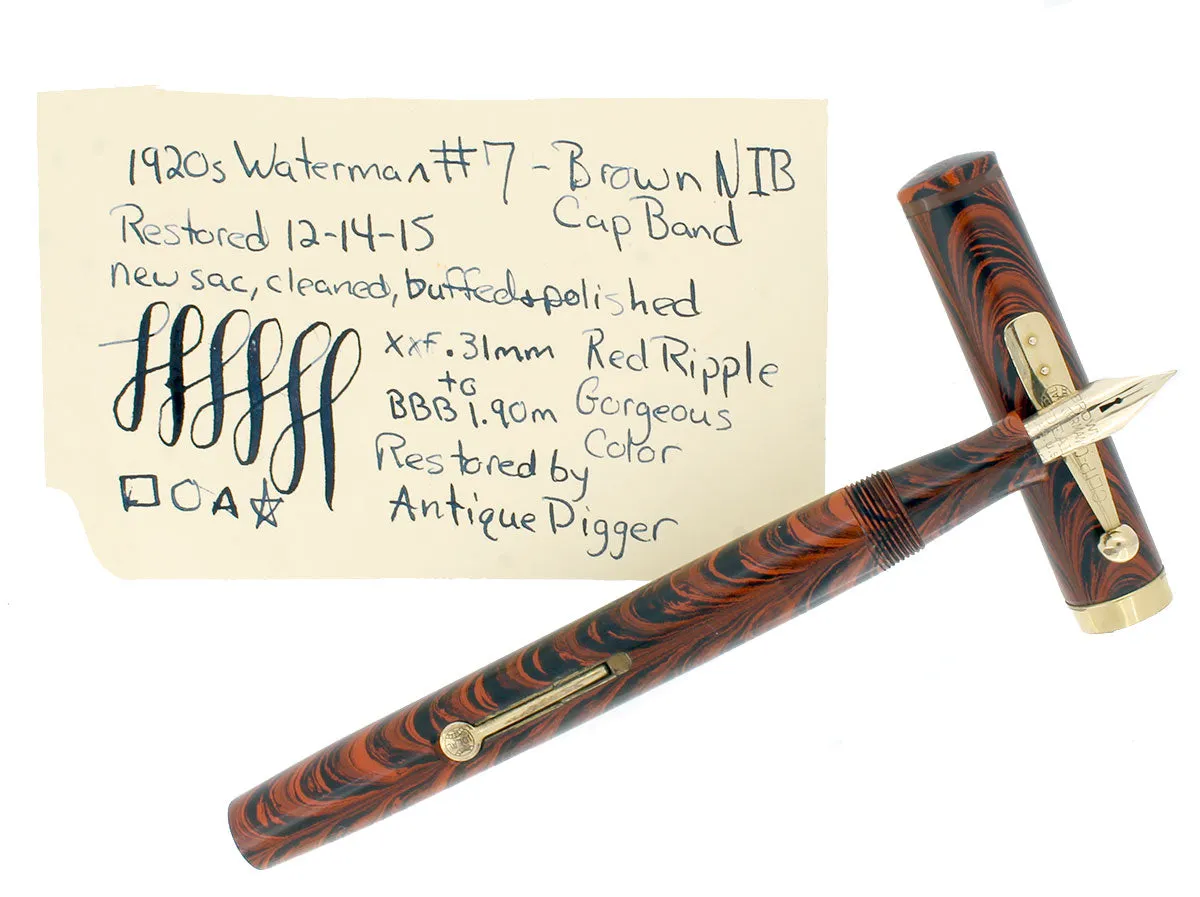 1920s Waterman #7 - Brown NIB
Cap Band
Restored 12-14-15
new sac, cleaned, buffed+polished
xxf .31mm
to
BBB 1.90m
Red Ripple
Gorgeous
Color
Restored by
Antique Digger